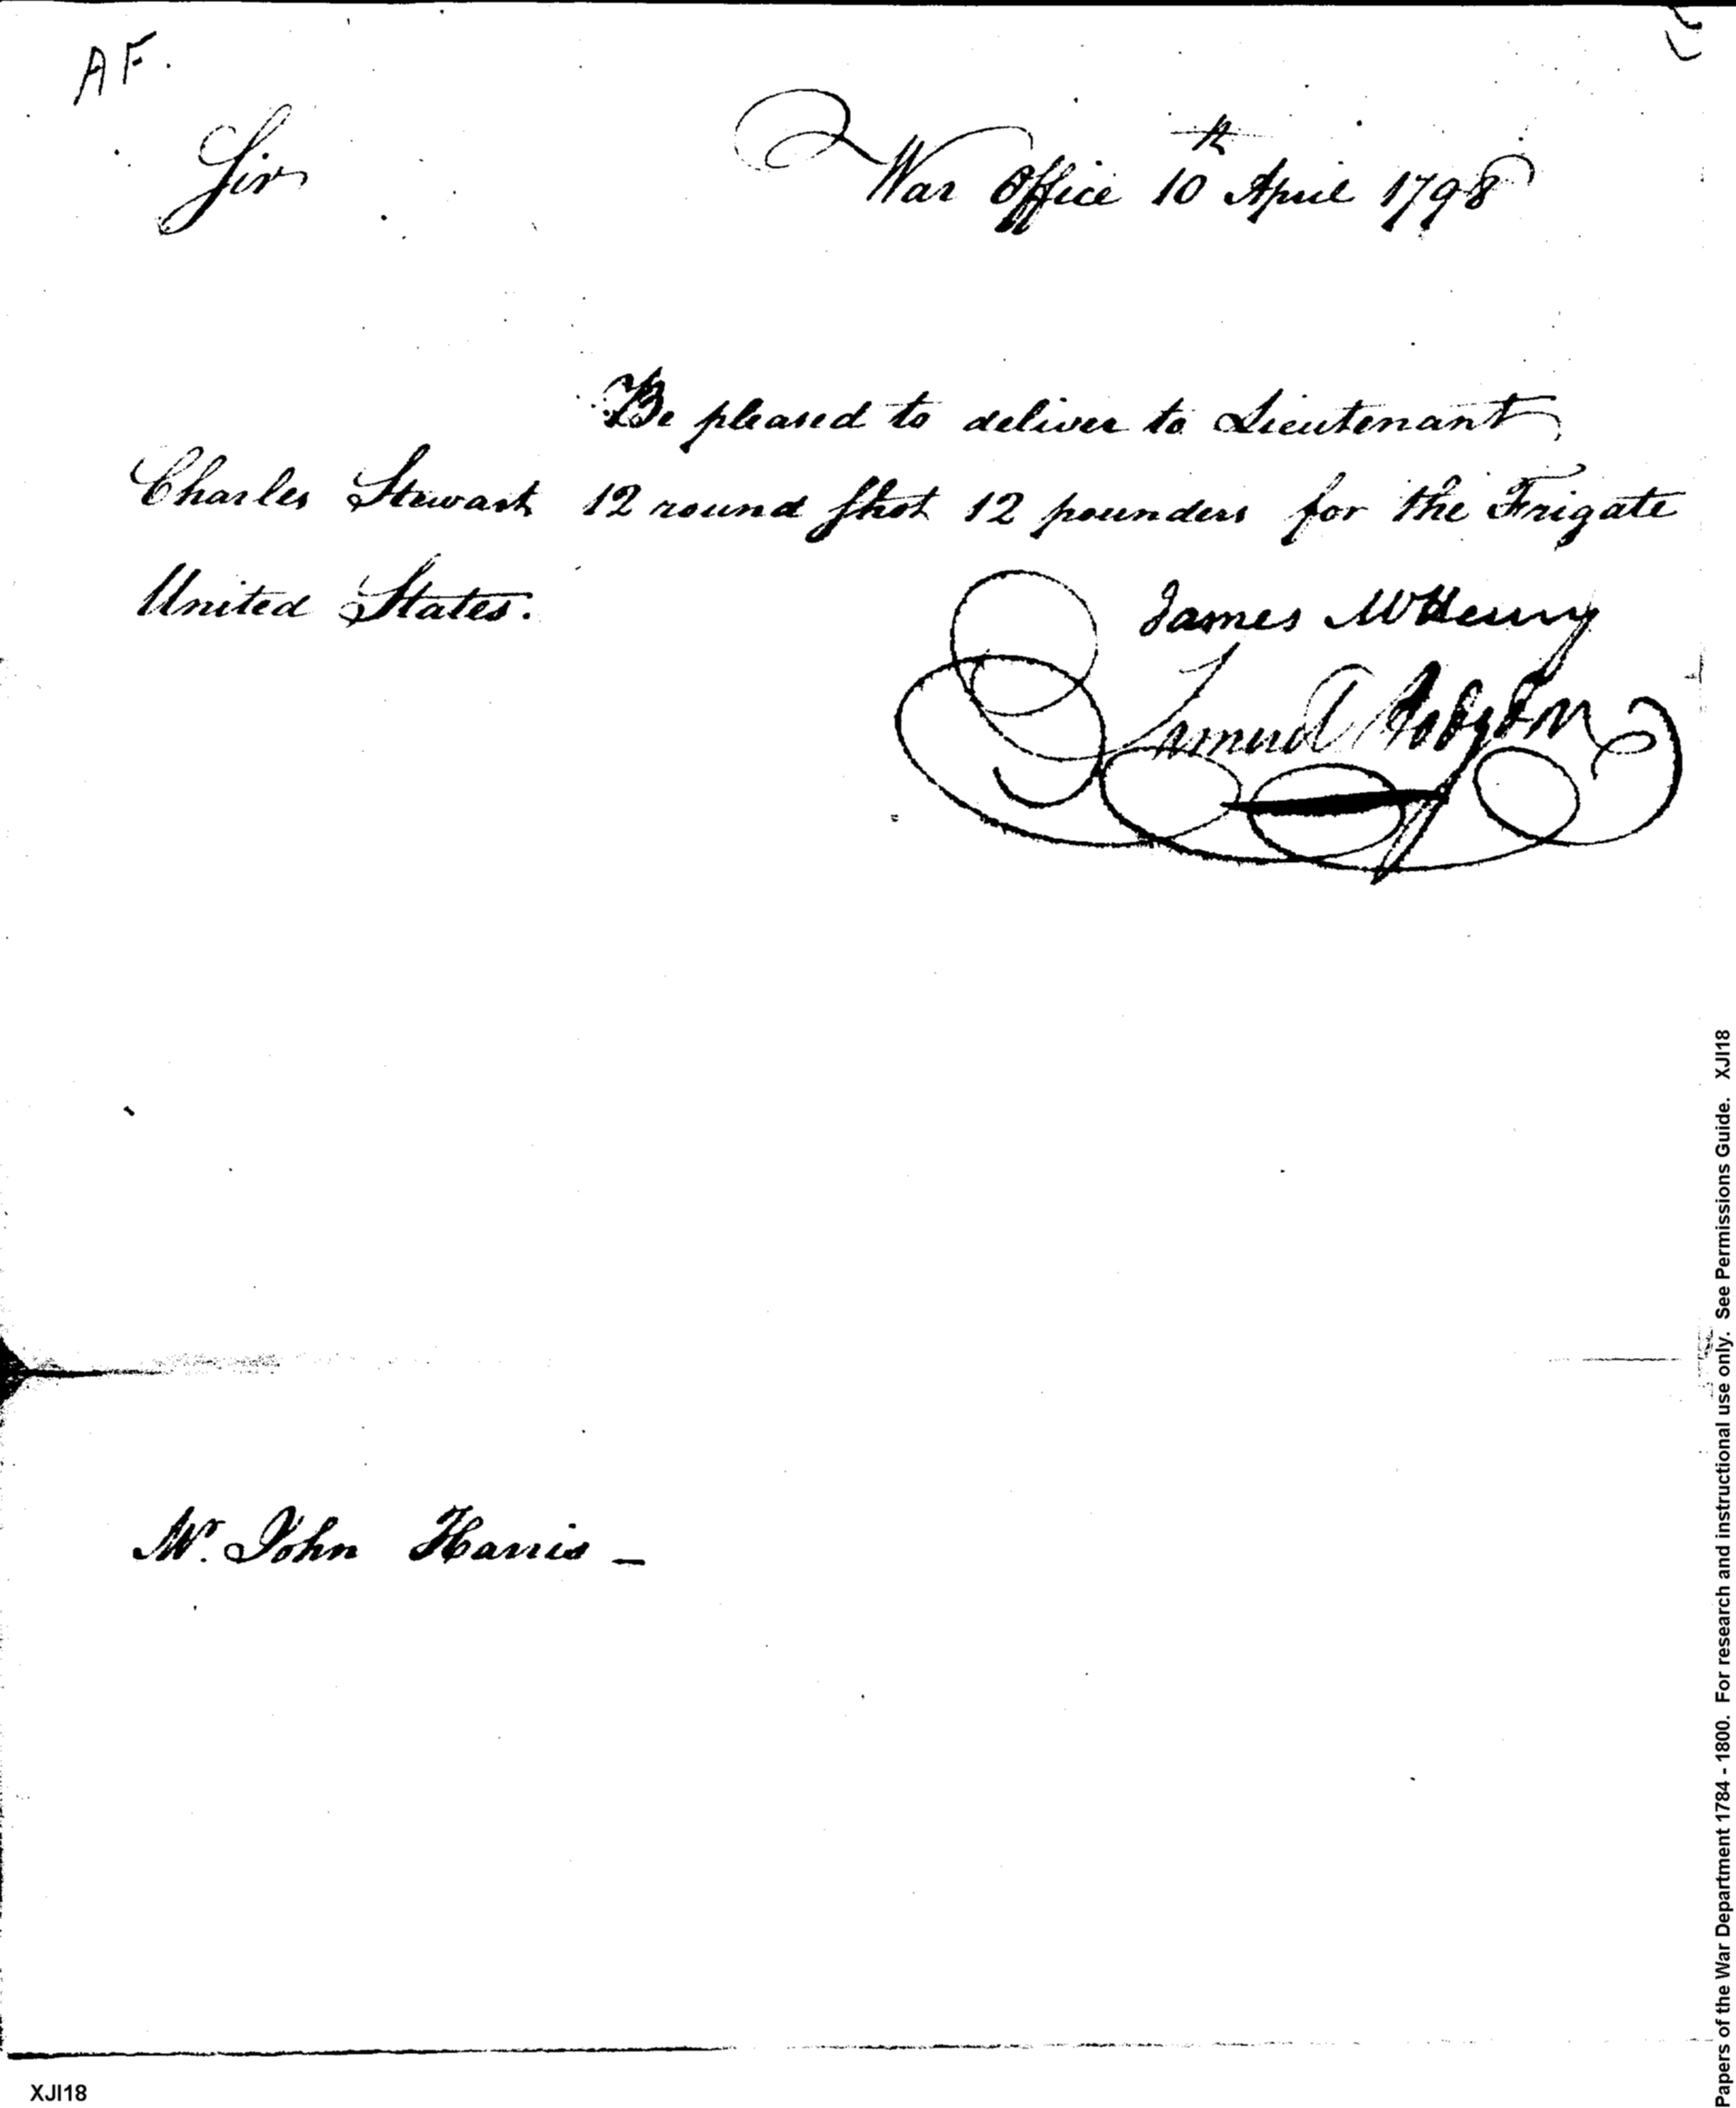 AF.
Sir
War Office 10th April 1798
Be pleased to deliver to Lieutenant
Charles Stewart 12 round shot 12 pounders for the Frigate
United States.
James McHenry
Samuel Hodgdon
Mr. John Harris –
XJI18
Papers of the War Department 1784 - 1800. For research and instructional use only. See Permissions Guide. XJI18